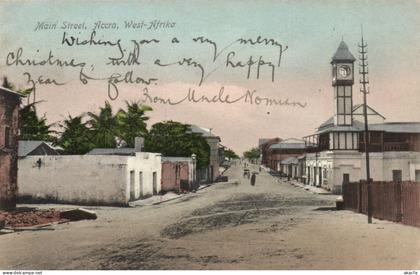 Main Street, Accra, West-Afrika
Wishing you a very merry,
Christmas, with a very happy
year to follow
From Uncle